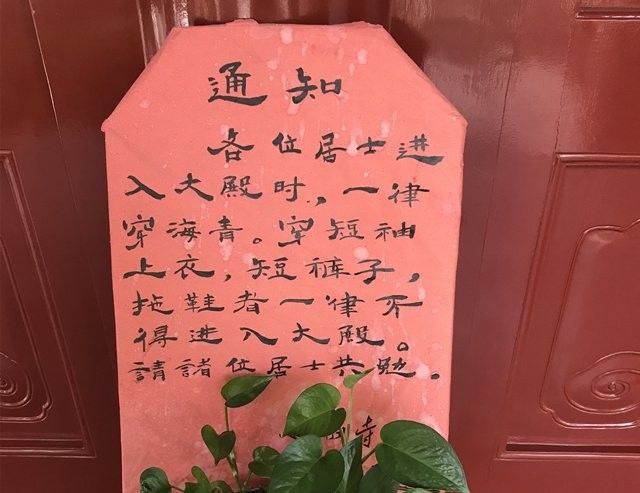 通知
各位居士进
入大殿时，一律
穿海青。穿短袖
上衣，短裤子，
拖鞋者一律不
得进入大殿。
請諸位居士共勉。
寺